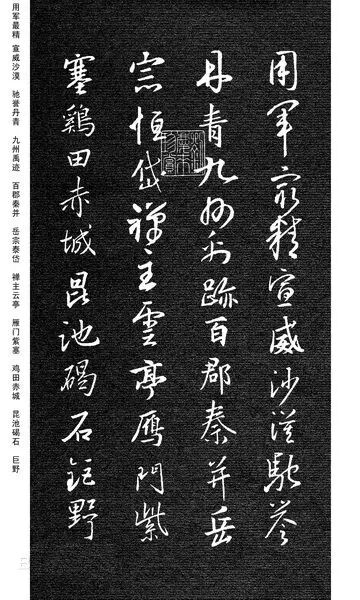 用军最精 宣威沙漠 驰誉丹青 九州禹迹 百郡秦并 岳宗泰岱 禅主云亭 雁门紫塞 鸡田赤城 昆池碣石 巨野
用軍最精宣威沙漠馳誉
丹青九州禹跡百郡秦并岳
宗恒岱禪主雲亭雁門紫
塞鷄田赤城昆池碣石鉅野